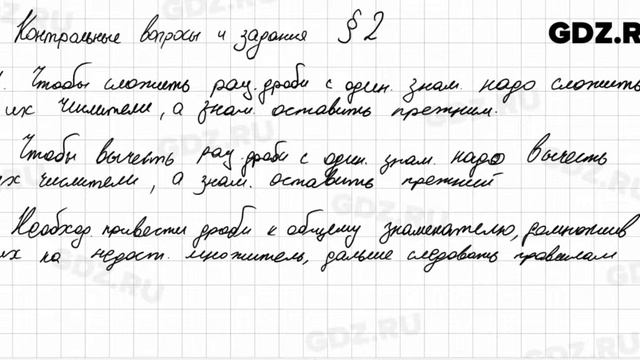 Контрольные вопросы и задания § 2
GDZ.RU
1. Чтобы сложить рац. дроби с один. знам. надо сложить
их числители, а знам. оставить прежним.
Чтобы вычесть рац. дроби с один. знам. надо вычесть
их числители, а знам. оставить прежний
Необход. привести дроби к общему знаменателю, домножив
их на недост. множитель, дальше следовать правилам